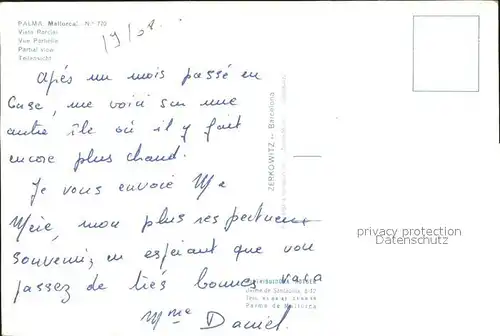 PALMA. Mallorca. N.º 770
Vista Parcial
Vue Partielle
Partial view
Teilansicht
19/08.
Après un mois passé en
Corse, me voici sur une
autre île où il y fait
encore plus chaud.
Je vous envoie
mon plus respectueux
souvenir, en espérant que vous
passez de très bonnes vaca
Mme Daniel.
ZERKOWITZ - Barcelona
Palma de Mallorca
privacy protection
Datenschutz